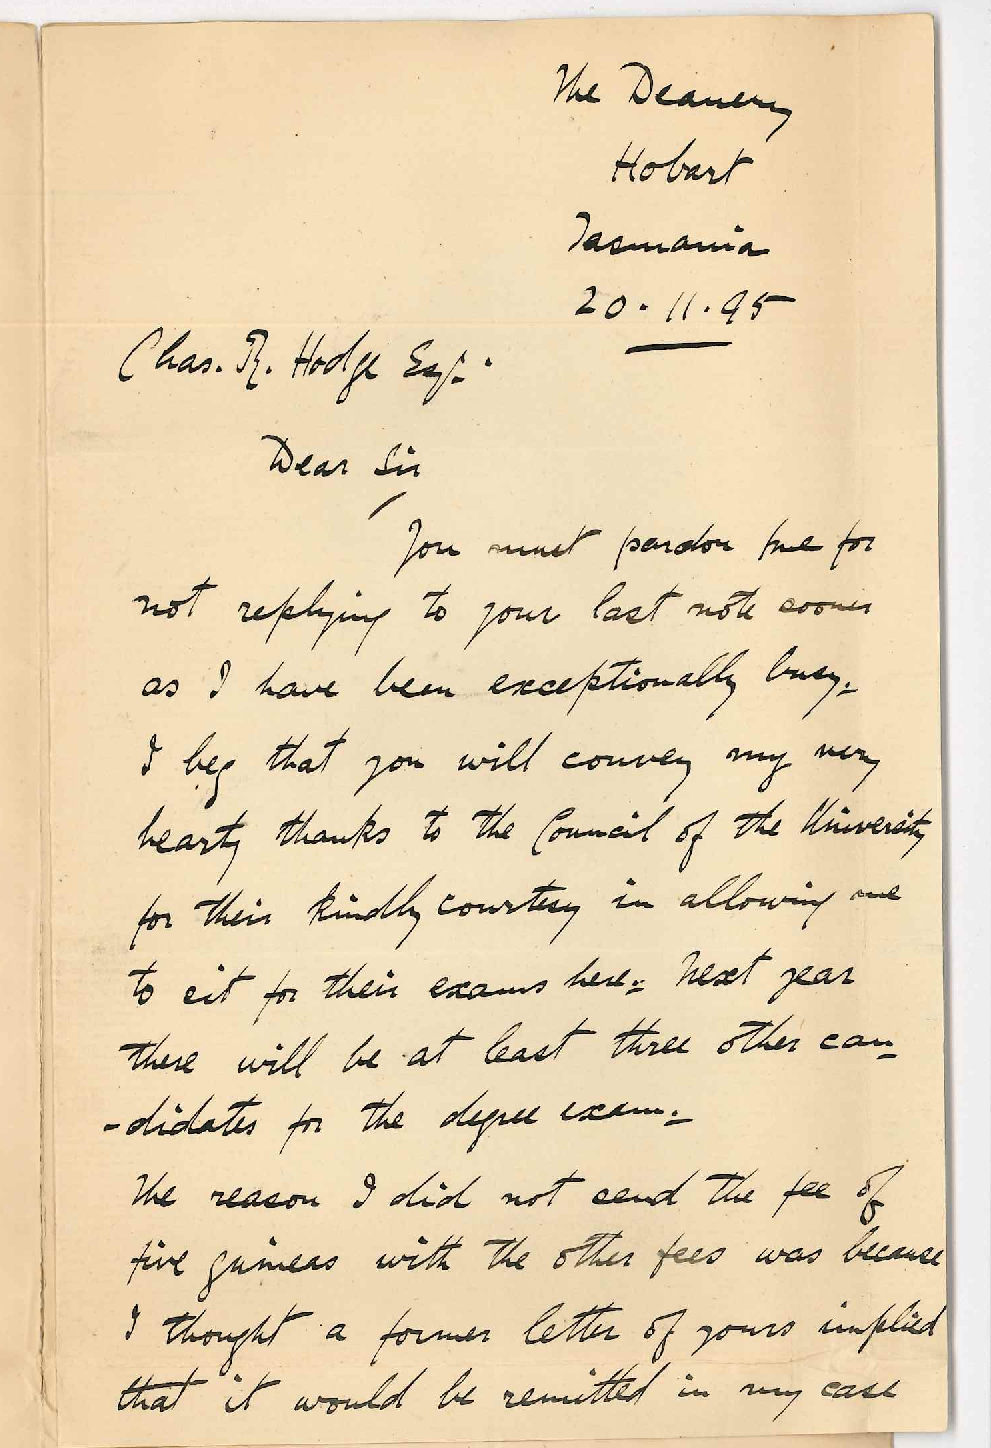 The Deanery
Hobart
Tasmania
20.11.95
Chas. R. Hodge Esq.
Dear Sir
You must pardon me for
not replying to your last note sooner
as I have been exceptionally busy.
I beg that you will convey my very
hearty thanks to the Council of the University
for their kindly courtesy in allowing me
to sit for their exams here. Next year
there will be at least three other can-
-didates for the degree exam.
The reason I did not send the fee of
five guineas with the other fees was because
I thought a former letter of yours implied
that it would be remitted in my case